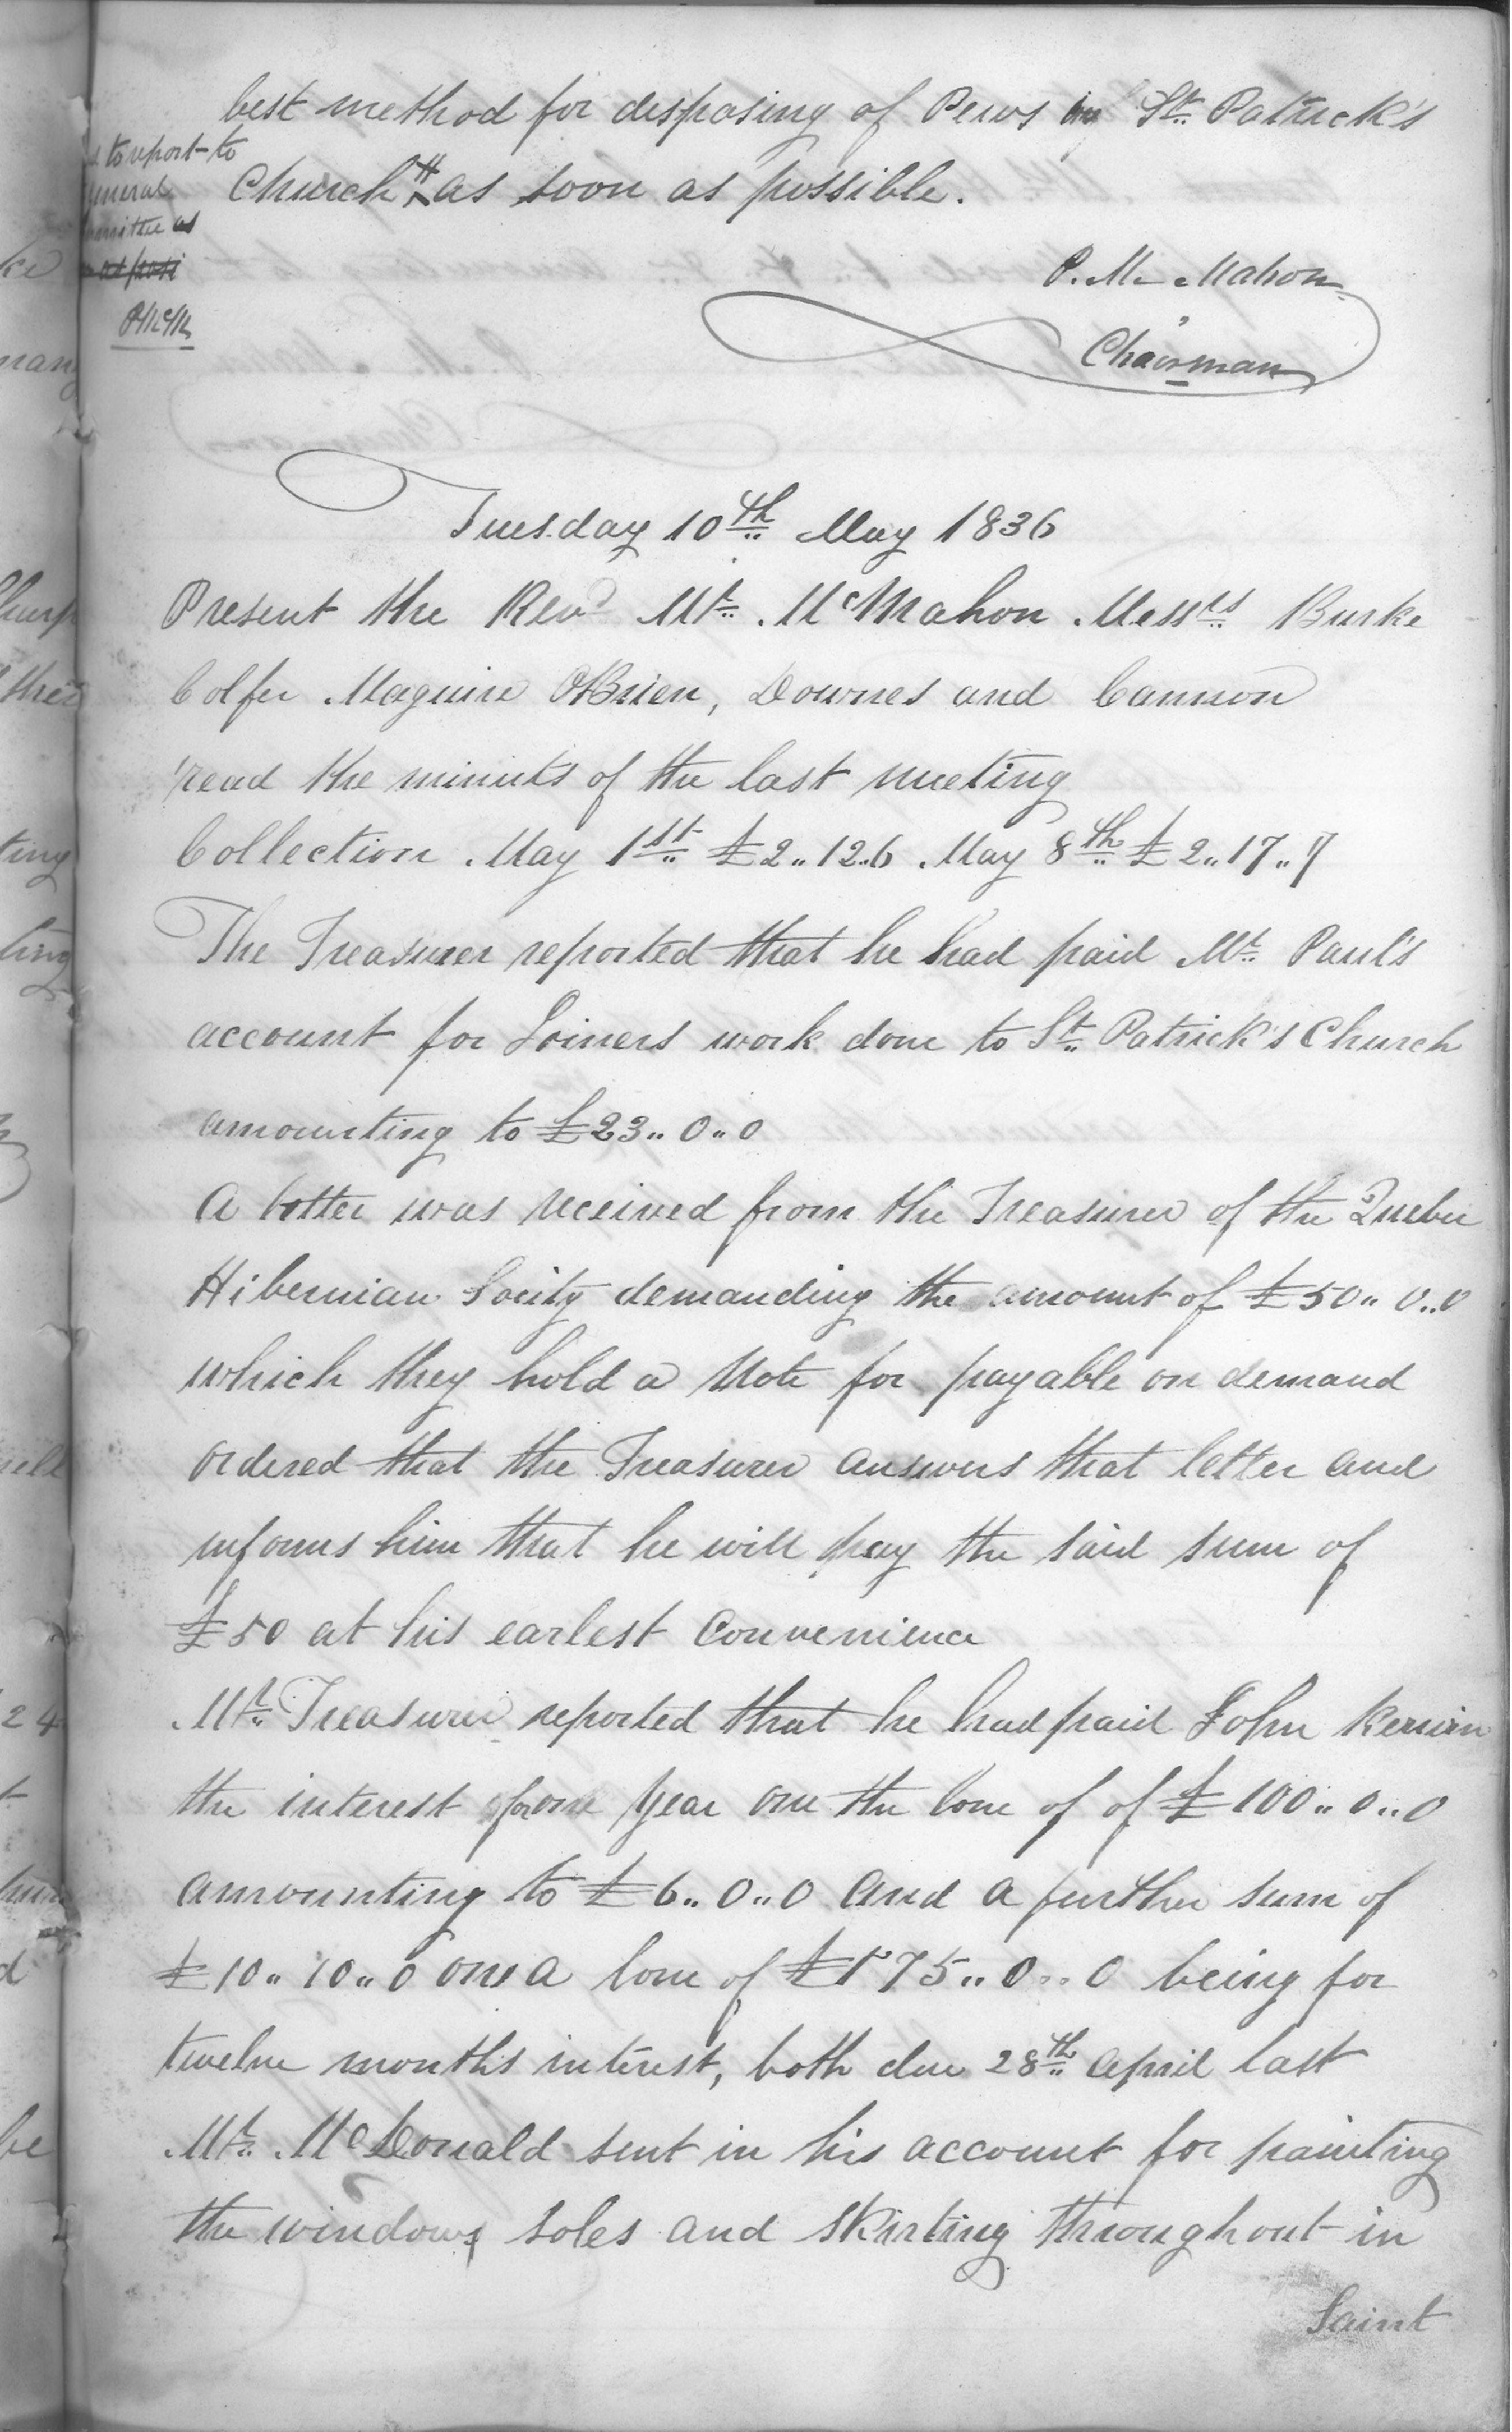 best method for desposing of Pews in St. Patrick's
to report to
Church # as soon as possible.
as
P. Mc Mahon
Chairman
Tuesday 10th May 1836
Present the Revd Mr. McMahon Messrs Burke
Colfer Maguire OBrien, Downes and Cannon
read the minuts of the last meeting
Collection May 1st £2..12..6 May 8th £2..17..7
The Treasurer reported that he had paid Mr. Paul's
account for Joiners work done to St. Patrick's Church
amounting to £23..0..0
A letter was received from the Treasurer of the Quebec
Hibernian Socity demanding the amount of £50..0..0
which they hold a Note for payable on demand
ordered that the Treasurer answers that letter and
informs him that he will pay the said sum of
£50 at his earlest convenience
Mr. Treasurer reported that he had paid John Kerwin
the interest for one year on the lone of of £100..0..0
amounting to £6..0..0 and a further sum of
£10..10..0 on a lone of £175..0..0 being for
twelve months interest, both due 28th April last
Mr. McDonald sent in his account for painting
the windows soles and skirting throughout in
Saint